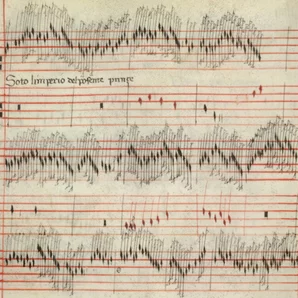 Soto limperio del posente prinze